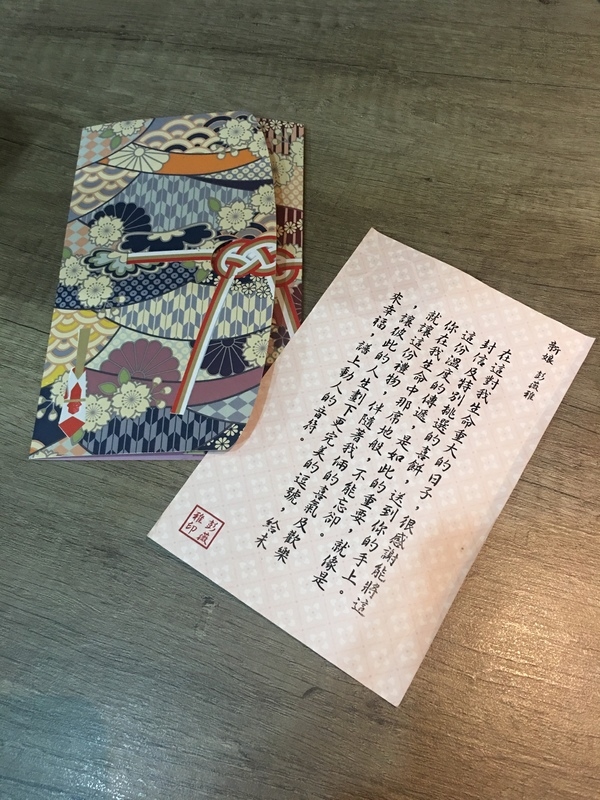 新娘 彭薇雅
在這對我生命重大的日子，很感謝能將這
封信及特別挑選的喜餅，送到你的手上。
這份溫度的傳遞，是如此的重要。就像是
你在我生命中那席地般，不能忘卻。
就讓這份禮物，伴隨著我倆的喜氣及歡樂
，讓彼此的人生劃下更完美的逗號，給未
來幸福，譜上動人的音符。
彭薇
雅印